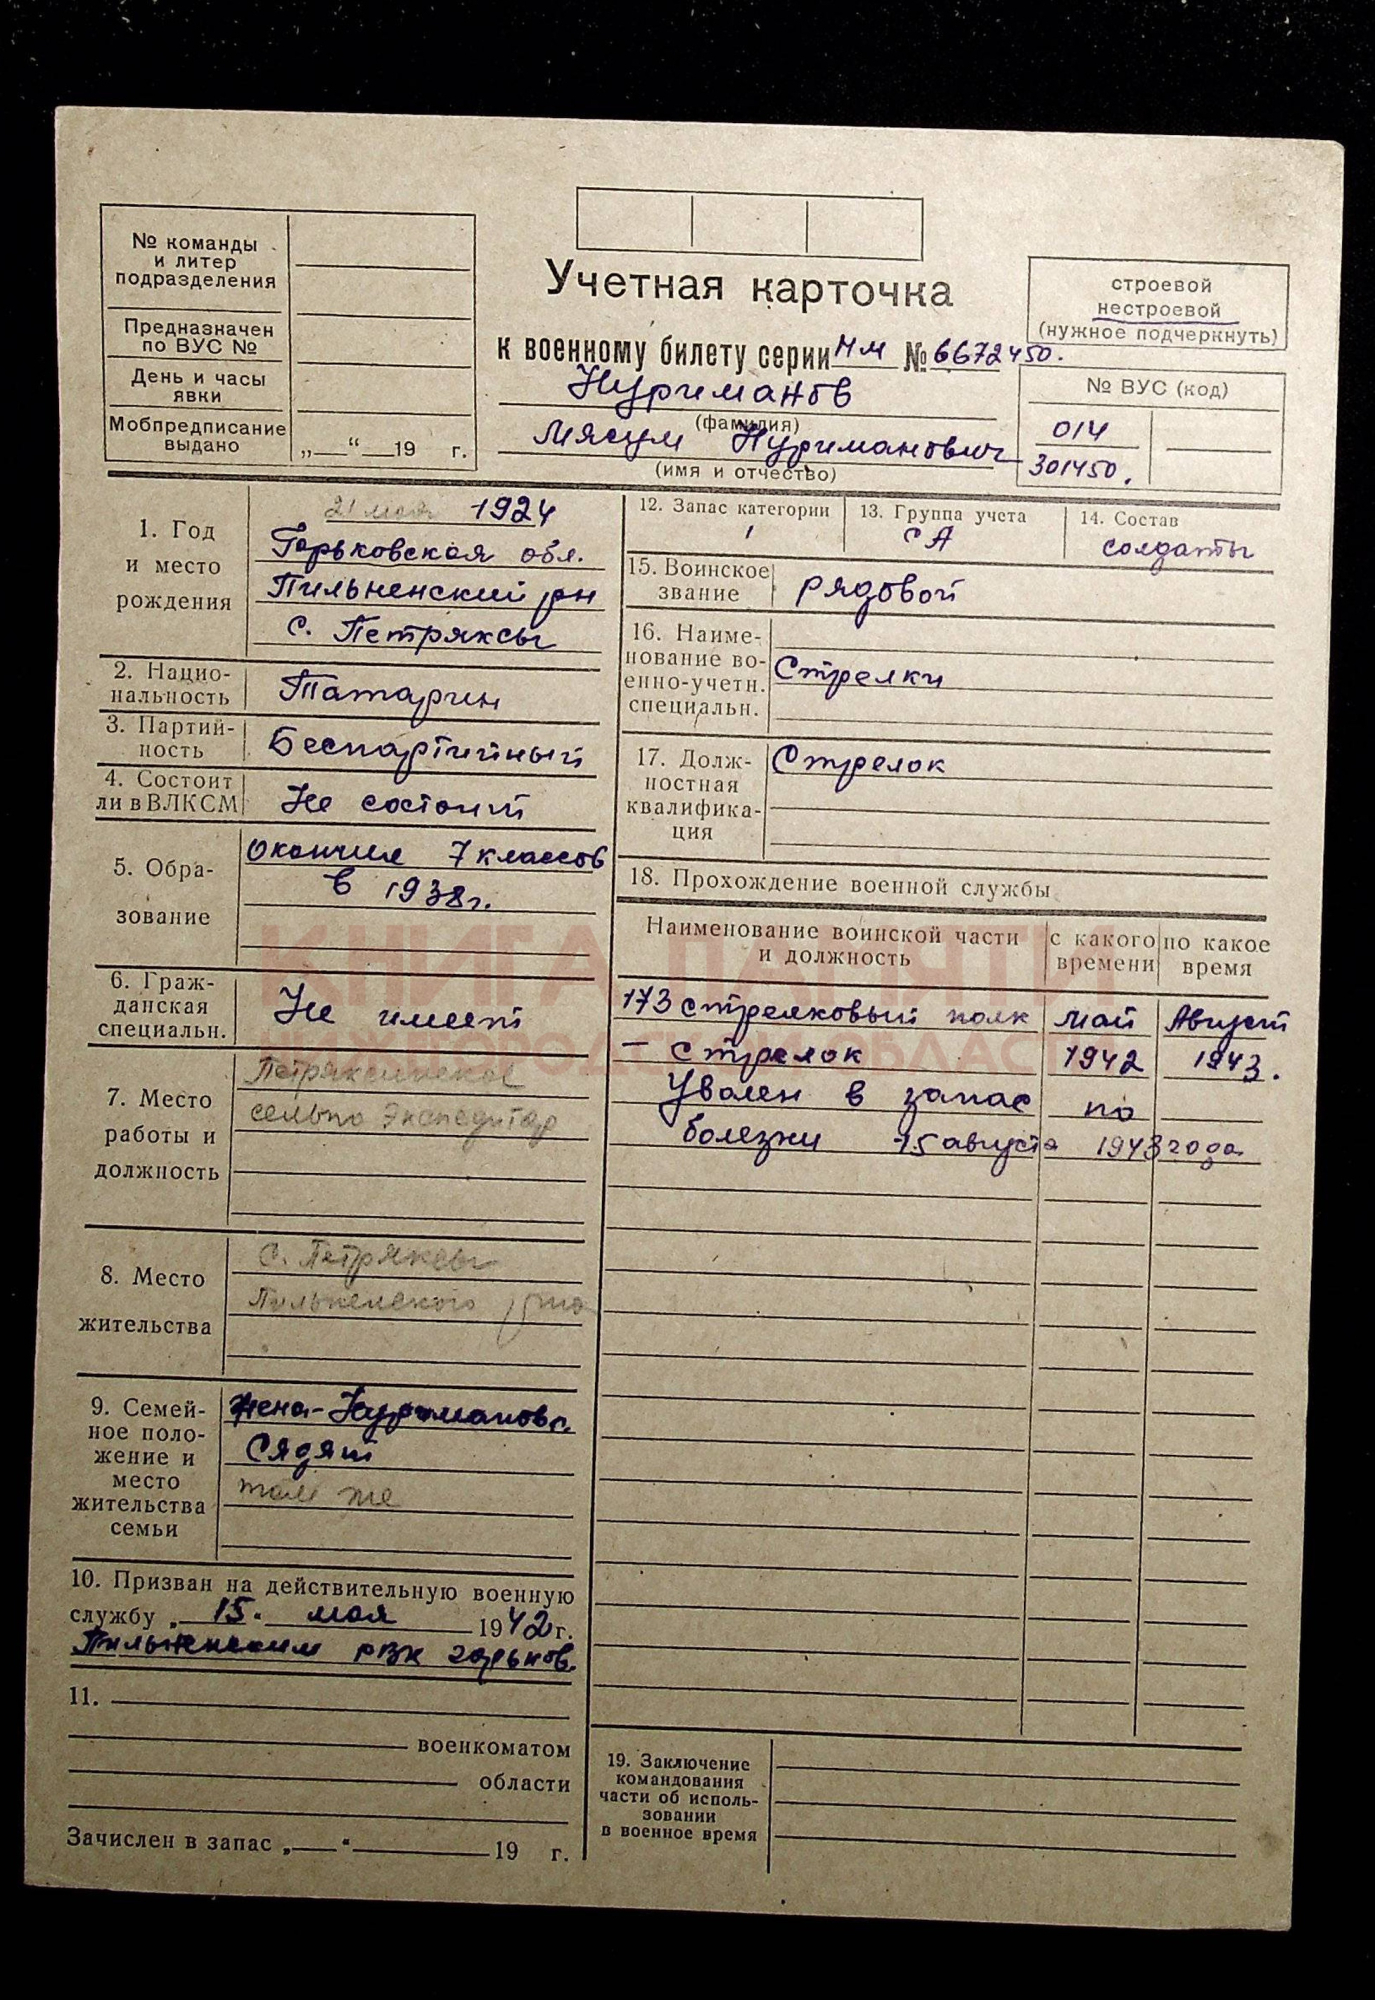 № команды
и литер
подразделения
Предназначен
по ВУС №
День и часы
явки
Мобпредписание
выдано
„ “ 19 г.
Учетная карточка
к военному билету серии НМ № 6672450.
Нуриманов
(фамилия)
Мясум Нуриманович
(имя и отчество)
строевой
нестроевой
(нужное подчеркнуть)
№ ВУС (код)
014
301450.
1. Год
и место
рождения
21 мая 1924
Горьковская обл.
Пильненский рн
с. Петряксы
2. Нацио-
нальность
Татарин
3. Партий-
ность
Беспартийный
4. Состоит
ли в ВЛКСМ
Не состоит
5. Обра-
зование
Окончил 7 классов
в 1938г.
6. Граж-
данская
специальн.
Не имеет
7. Место
работы и
должность
Петряксинское
сельпо Экспедитор
8. Место
жительства
с. Петряксы
Пильненского р-на
9. Семей-
ное поло-
жение и
место
жительства
семьи
Жена-Нуриманова
Сядят
там же
10. Призван на действительную военную
службу „ 15. мая 1942 г.
Пильненским РВК горьков.
11.
военкоматом
области
Зачислен в запас „ “ 19 г.
12. Запас категории
1
13. Группа учета
СА
14. Состав
солдаты
15. Воинское
звание
рядовой
16. Наиме-
нование во-
енно-учетн.
специальн.
Стрелки
17. Долж-
ностная
квалифика-
ция
Стрелок
18. Прохождение военной службы
Наименование воинской части
и должность
с какого
времени
по какое
время
173 стрелковый полк май Август
- стрелок 1942 1943.
Уволен в запас по
болезни 15 августа 1943 года
19. Заключение
командования
части об исполь-
зовании
в военное время
КНИГА ПАМЯТИ
НИЖЕГОРОДСКОЙ ОБЛАСТИ